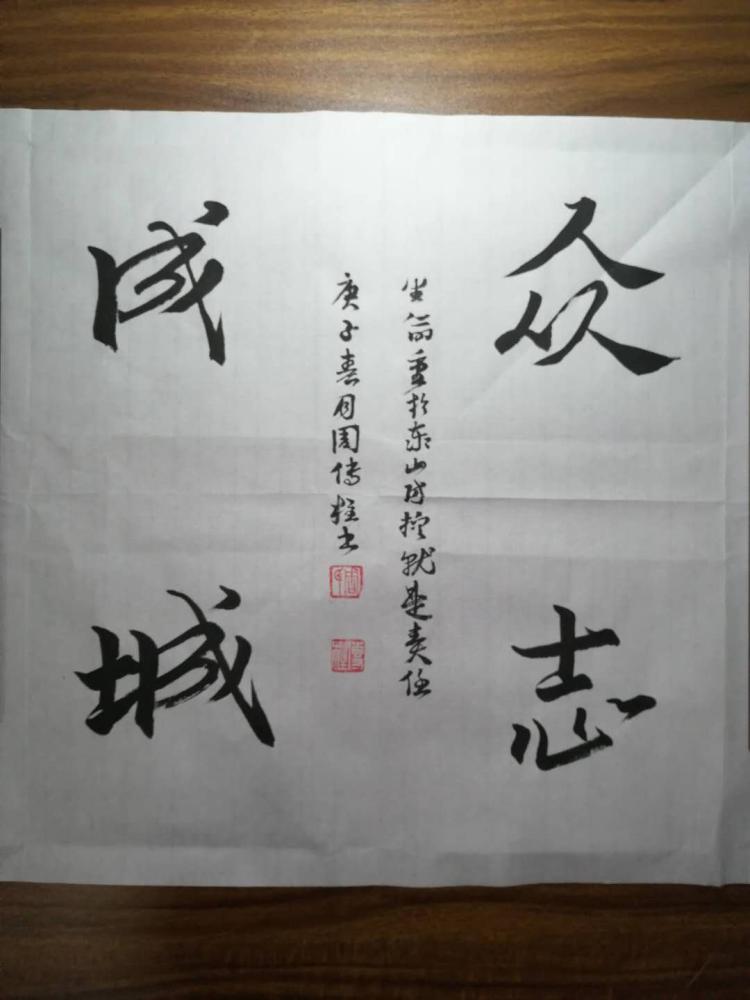 众志
生命重於泰山防控就是责任
庚子春月周传柱书
成城